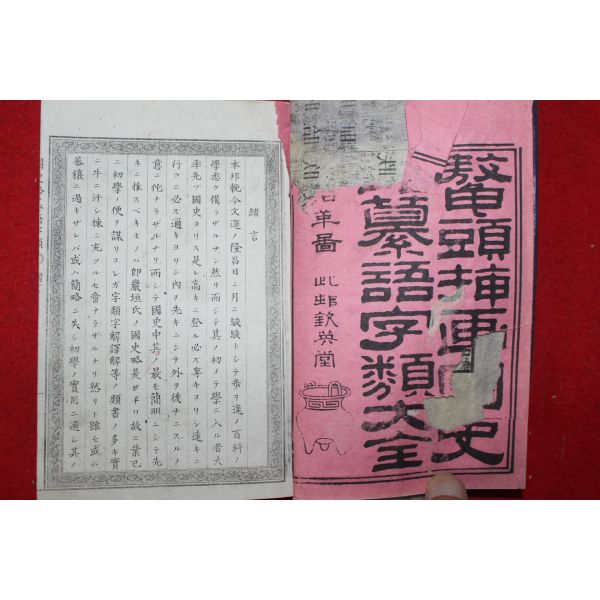 鼇頭揷画国史
纂語字類大全
革圖
此邨欽英堂
緒言
本邦輓今文運ノ隆昌日ニ月ニ駸駸トシテ歩ヲ進メ百科ノ
學悉ク備ラザルナシ然リ而シテ其ノ初メテ學ニ入ル者大
率先ヅ國史ヨリス是レ高キニ登ル必ズ卑キヨリシ遠キニ
行クニ必ス邇キヨリシ内ヲ先キニシテ外ヲ後チニスルノ
意ニ佗ナラザルナリ而シテ國史中其ノ最モ簡明ニシテ先
キニ推スベキモノハ卽巖垣氏ノ國史略是ナリ故ニ業已
ニ初學ノ便ヲ謀リコレガ字類字解譯解等ノ類書ノ多キ實
ニ牛ニ汗シ棟ニ充ツルモ啻ナラザルナリ然リト雖モ或ハ
蕃穰ニ過ギザレバ或ハ簡略ニ失シ初學ノ實用ニ適シ其ノ